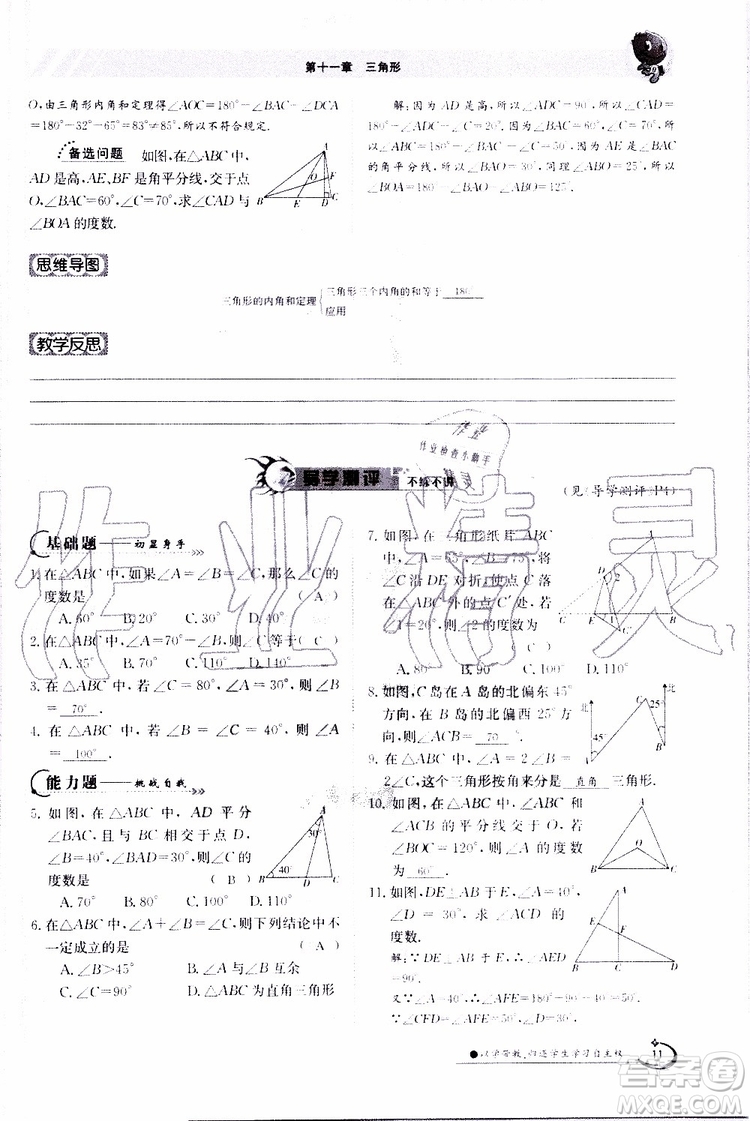 第十一章 三角形
O,由三角形内角和定理得∠AOC=180°-∠BAC-∠DCA
=180°-32°-65°=83°≠85°,所以不符合规定.
备选问题 如图,在△ABC中,
AD是高,AE、BF是角平分线,交于点
O,∠ABC=60°,∠C=70°,求∠CAD与
∠BOA的度数.
解:因为AD是高,所以∠ADC=90°,所以∠CAD=
180°-∠ADC-∠C=20°.
的角平分线,所以∠BAO=30°,同理∠ABO=25°,所以
∠BOA=180°-∠BAO-∠ABO=125°.
思维导图
三角形的内角和定理
三角形三个内角的和等于 180°
应用
教学反思
导学测评 不练不讲
(见《导学测评》P4)
基础题——初显身手
1. 在△ABC中,如果∠A=∠B=∠C,那么∠C的
度数是 ( A )
A. 60° B. 20° C. 30° D. 40°
2. 在△ABC中,∠A=70°-∠B,则∠C等于( C )
A. 35° B. 70° C. 110° D. 140°
3. 在△ABC中,若∠C=80°,∠A=40°,则∠B=
70°
4. 在△ABC中,若∠B=∠C=40°,则∠A=
100° .
能力题——挑战自我
5. 如图,在△ABC中,AD平分
∠BAC,且与BC相交于点D,
∠B=40°,∠BAD=30°,则∠C的
度数是 ( B )
A. 70° B. 80° C. 100° D. 110°
6. 在△ABC中,∠A+∠B=∠C,则下列结论中不
一定成立的是 ( A )
A. ∠B>45° B. ∠A与∠B互余
C. ∠C=90° D. △ABC为直角三角形
7. 如图,在三角形纸片ABC
中,∠A=65°,∠B=75°,将
∠C沿DE对折,使点C落
在△ABC外的点C′处,若
∠1=20°,则∠2的度数为
( C )
A. 80° B. 90° C. 100°
8. 如图,C岛在A岛的北偏东45°
方向,在B岛的北偏西25°方
向,则∠ACB= 70 °
9. 在△ABC中,∠A=∠B=
2∠C,这个三角形按角来分是 直角 三角形.
10. 如图,在△ABC中,∠ABC和
∠ACB的平分线交于O,若
∠BOC=120°,则∠A的度数
为 60° .
11. 如图,DE⊥AB于E,∠A=40°,
∠D=30°,求∠ACD的
度数.
解:∵DE⊥AB于E,∴∠AED
=90°.
又∵∠A=40°,∴∠AFE=180°-90°-40°=50°.
∴∠CFD=∠AFE=50°.
●以学带教,归还学生学习自主权
11
答案圈
MXQE.COM